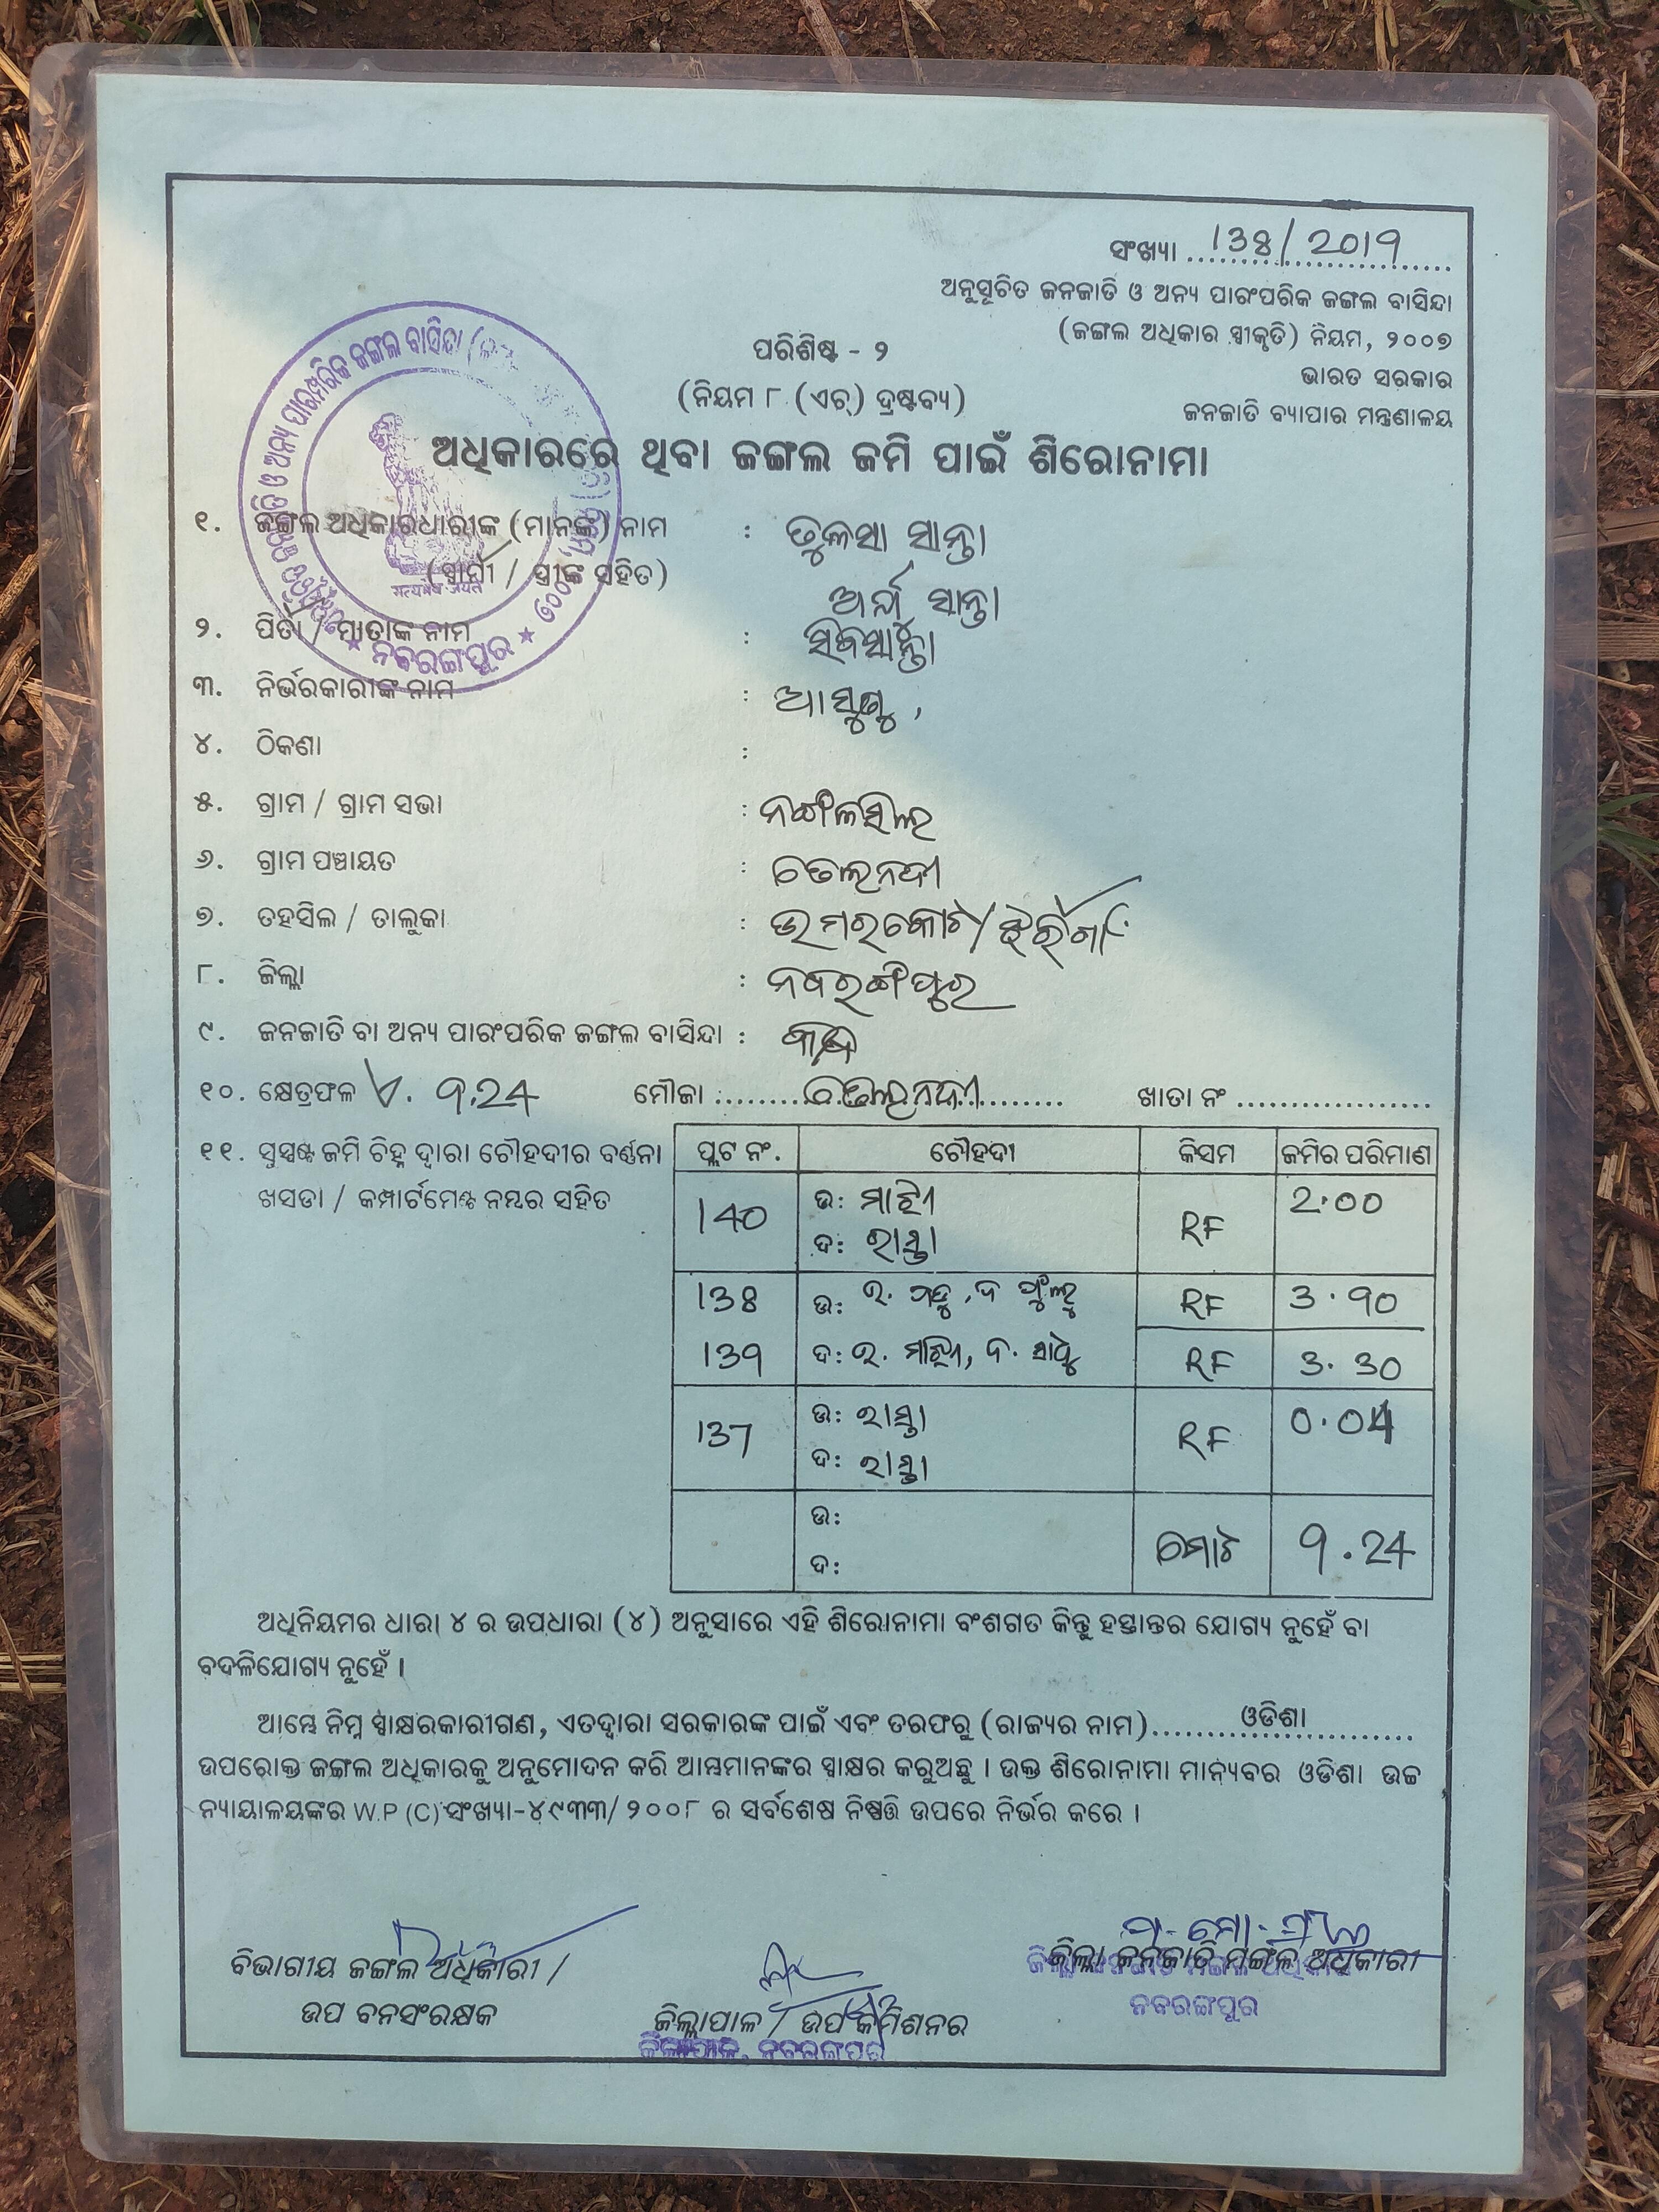 ସଂଖ୍ୟା 138/2019
ଅନୁସୂଚିତ ଜନଜାତି ଓ ଅନ୍ୟ ପାରଂପରିକ ଜଙ୍ଗଲ ବାସିନ୍ଦା
(ଜଙ୍ଗଲ ଅଧିକାର ସ୍ୱୀକୃତି) ନିୟମ, ୨୦୦୭
ପରିଶିଷ୍ଟ - ୨
ଭାରତ ସରକାର
(ନିୟମ ୮ (ଏଚ୍) ଦ୍ରଷ୍ଟବ୍ୟ)
ଜନଜାତି ବ୍ୟାପାର ମନ୍ତ୍ରଣାଳୟ
ଅଧିକାରରେ ଥିବା ଜଙ୍ଗଲ ଜମି ପାଇଁ ଶିରୋନାମା
୧. ଜଙ୍ଗଲ ଅଧିକାରଧାରୀଙ୍କ (ମାନଙ୍କ) ନାମ : ତୁଳସା ସାନ୍ତା
(ସ୍ୱାମୀ / ସ୍ତ୍ରୀଙ୍କ ସହିତ) ସାନ୍ତା
୨. ପିତା / ମାତାଙ୍କ ନାମ :
୩. ନିର୍ଭରକାରୀଙ୍କ ନାମ :
୪. ଠିକଣା :
୫. ଗ୍ରାମ / ଗ୍ରାମ ସଭା :
୬. ଗ୍ରାମ ପଞ୍ଚାୟତ : ଚେଲନଦୀ
୭. ତହସିଲ / ତାଲୁକା : ଉମରକୋଟ/ଝରିଗାଁ
୮. ଜିଲ୍ଲା : ନବରଙ୍ଗପୁର
୯. ଜନଜାତି ବା ଅନ୍ୟ ପାରଂପରିକ ଜଙ୍ଗଲ ବାସିନ୍ଦା :
୧୦. କ୍ଷେତ୍ରଫଳ ଏ. 9.24 ମୌଜା ଚେଲନଦୀ ଖାତା ନଂ
୧୧. ସୁସ୍ପଷ୍ଟ ଜମି ଚିହ୍ନ ଦ୍ୱାରା ଚୌହଦୀର ବର୍ଣ୍ଣନା
ଖସଡା / କମ୍ପାର୍ଟମେଣ୍ଟ ନମ୍ବର ସହିତ
ପ୍ଲଟ ନଂ. ଚୌହଦୀ କିସମ ଜମିର ପରିମାଣ
140 ଉ: ମାଝୀ RF 2.00
ଦ: ରାସ୍ତା
138 ଉ: RF 3.90
139 ଦ: ଉ. ମାଝୀ, ଦ. ସାଧୁ RF 3.30
137 ଉ: ରାସ୍ତା RF 0.04
ଦ: ରାସ୍ତା
ଉ: ମୋଟ 9.24
ଦ:
ଅଧିନିୟମର ଧାରା ୪ ର ଉପଧାରା (୪) ଅନୁସାରେ ଏହି ଶିରୋନାମା ବଂଶଗତ କିନ୍ତୁ ହସ୍ତାନ୍ତର ଯୋଗ୍ୟ ନୁହେଁ ବା
ବଦଳିଯୋଗ୍ୟ ନୁହେଁ ।
ଆମ୍ଭେ ନିମ୍ନ ସ୍ୱାକ୍ଷରକାରୀଗଣ, ଏତଦ୍ୱାରା ସରକାରଙ୍କ ପାଇଁ ଏବଂ ତରଫରୁ (ରାଜ୍ୟର ନାମ) ଓଡିଶା
ଉପରୋକ୍ତ ଜଙ୍ଗଲ ଅଧିକାରକୁ ଅନୁମୋଦନ କରି ଆମ୍ଭମାନଙ୍କର ସ୍ୱାକ୍ଷର କରୁଅଛୁ । ଉକ୍ତ ଶିରୋନାମା ମାନ୍ୟବର ଓଡିଶା ଉଚ୍ଚ
ନ୍ୟାୟାଳୟଙ୍କର W.P (C) ସଂଖ୍ୟା-୪୯୩୩/୨୦୦୮ ର ସର୍ବଶେଷ ନିଷ୍ପତ୍ତି ଉପରେ ନିର୍ଭର କରେ ।
ବିଭାଗୀୟ ଜଙ୍ଗଲ ଅଧିକାରୀ /
ଉପ ବନସଂରକ୍ଷକ
ଜିଲ୍ଲାପାଳ / ଉପ କମିଶନର
ଜିଲ୍ଲାପାଳ, ନବରଙ୍ଗପୁର
ଜିଲ୍ଲା ଜନଜାତି ମଙ୍ଗଳ ଅଧିକାରୀ
ନବରଙ୍ଗପୁର